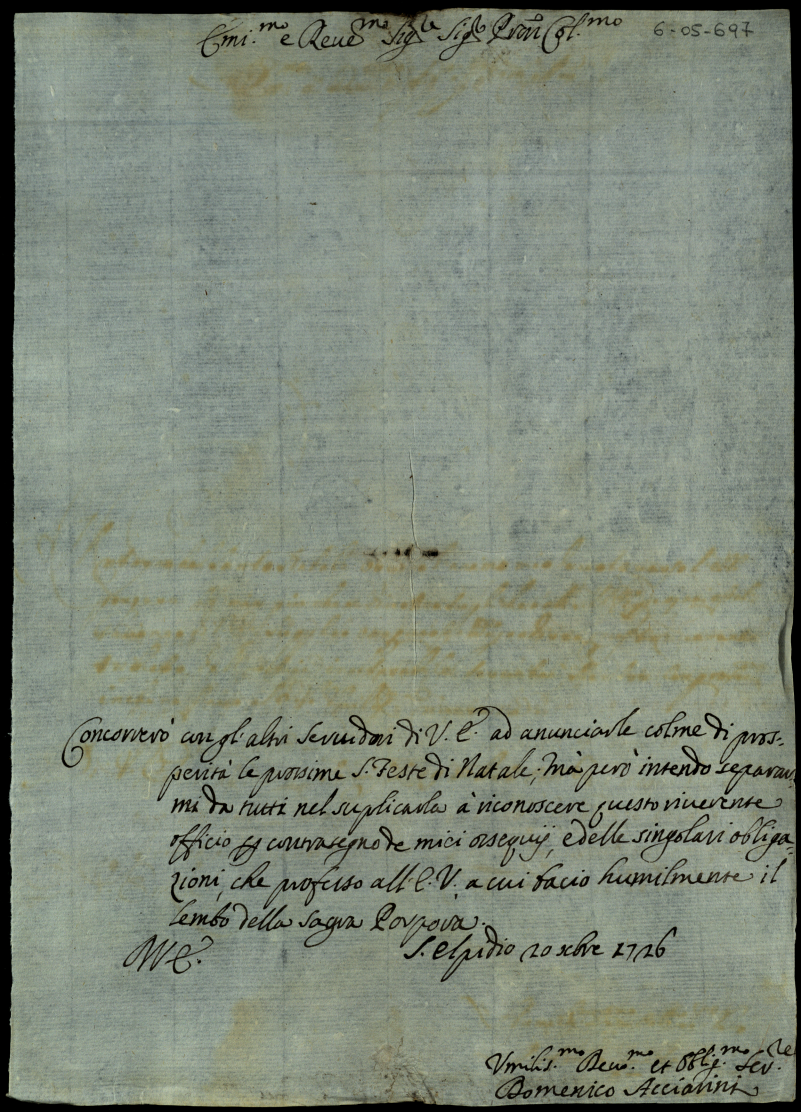 Emi.mo e Reue.mo Sig.re Sig.re Prõn Col.mo
6-05-697
Concorrerò con gl'altri Seruidori di V. E. ad anunciarle colme di pros-
perità le prossime S. Feste di Natale; mà però intendo separar-
mi da tutti nel suplicarla à riconoscere questo riuerente
officio per contrasegno de miei ossequij, e delle singolari obliga-
zioni, che professo all'E. V. a cui bacio humilmente il
lembo della sagra Porpora.
S. Elpidio 20 xbre 1726
Vmilis.mo Deuo.mo et Obblig.mo Ser.re
Domenico Acciarini